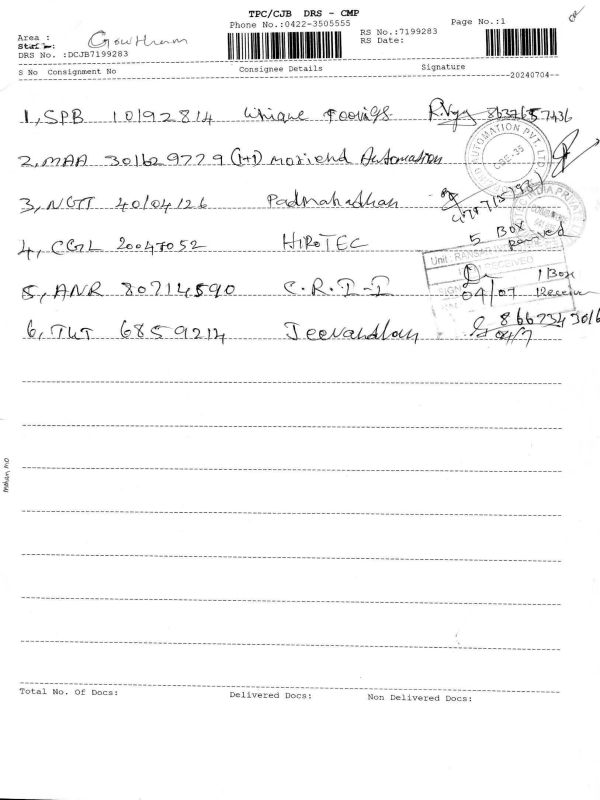 TPC/CJB DRS - CMP
Phone No.:0422-3505555
Page No.:1
Area :
Staff :
Gowtham
RS No.:7199283
RS Date:
DRS No. :DCJB7199283
S No Consignment No Consignee Details Signature
20240704
1, SPB 10192814 Unique
2, MAA 301629779 (1+1) Automation
3, NGT 40104126 Padmanabhan
4, CGL 20047052 HIROTEC 5 Box received
5, ANR 80714590 C.R.I-I 04/07 1 Box Receive
6, TUT 6859214 Jeevandhan 04/7
AUTOMATION PVT. LTD
CBE-35
Unit :
RECEIVED
Total No. Of Docs: Delivered Docs: Non Delivered Docs: